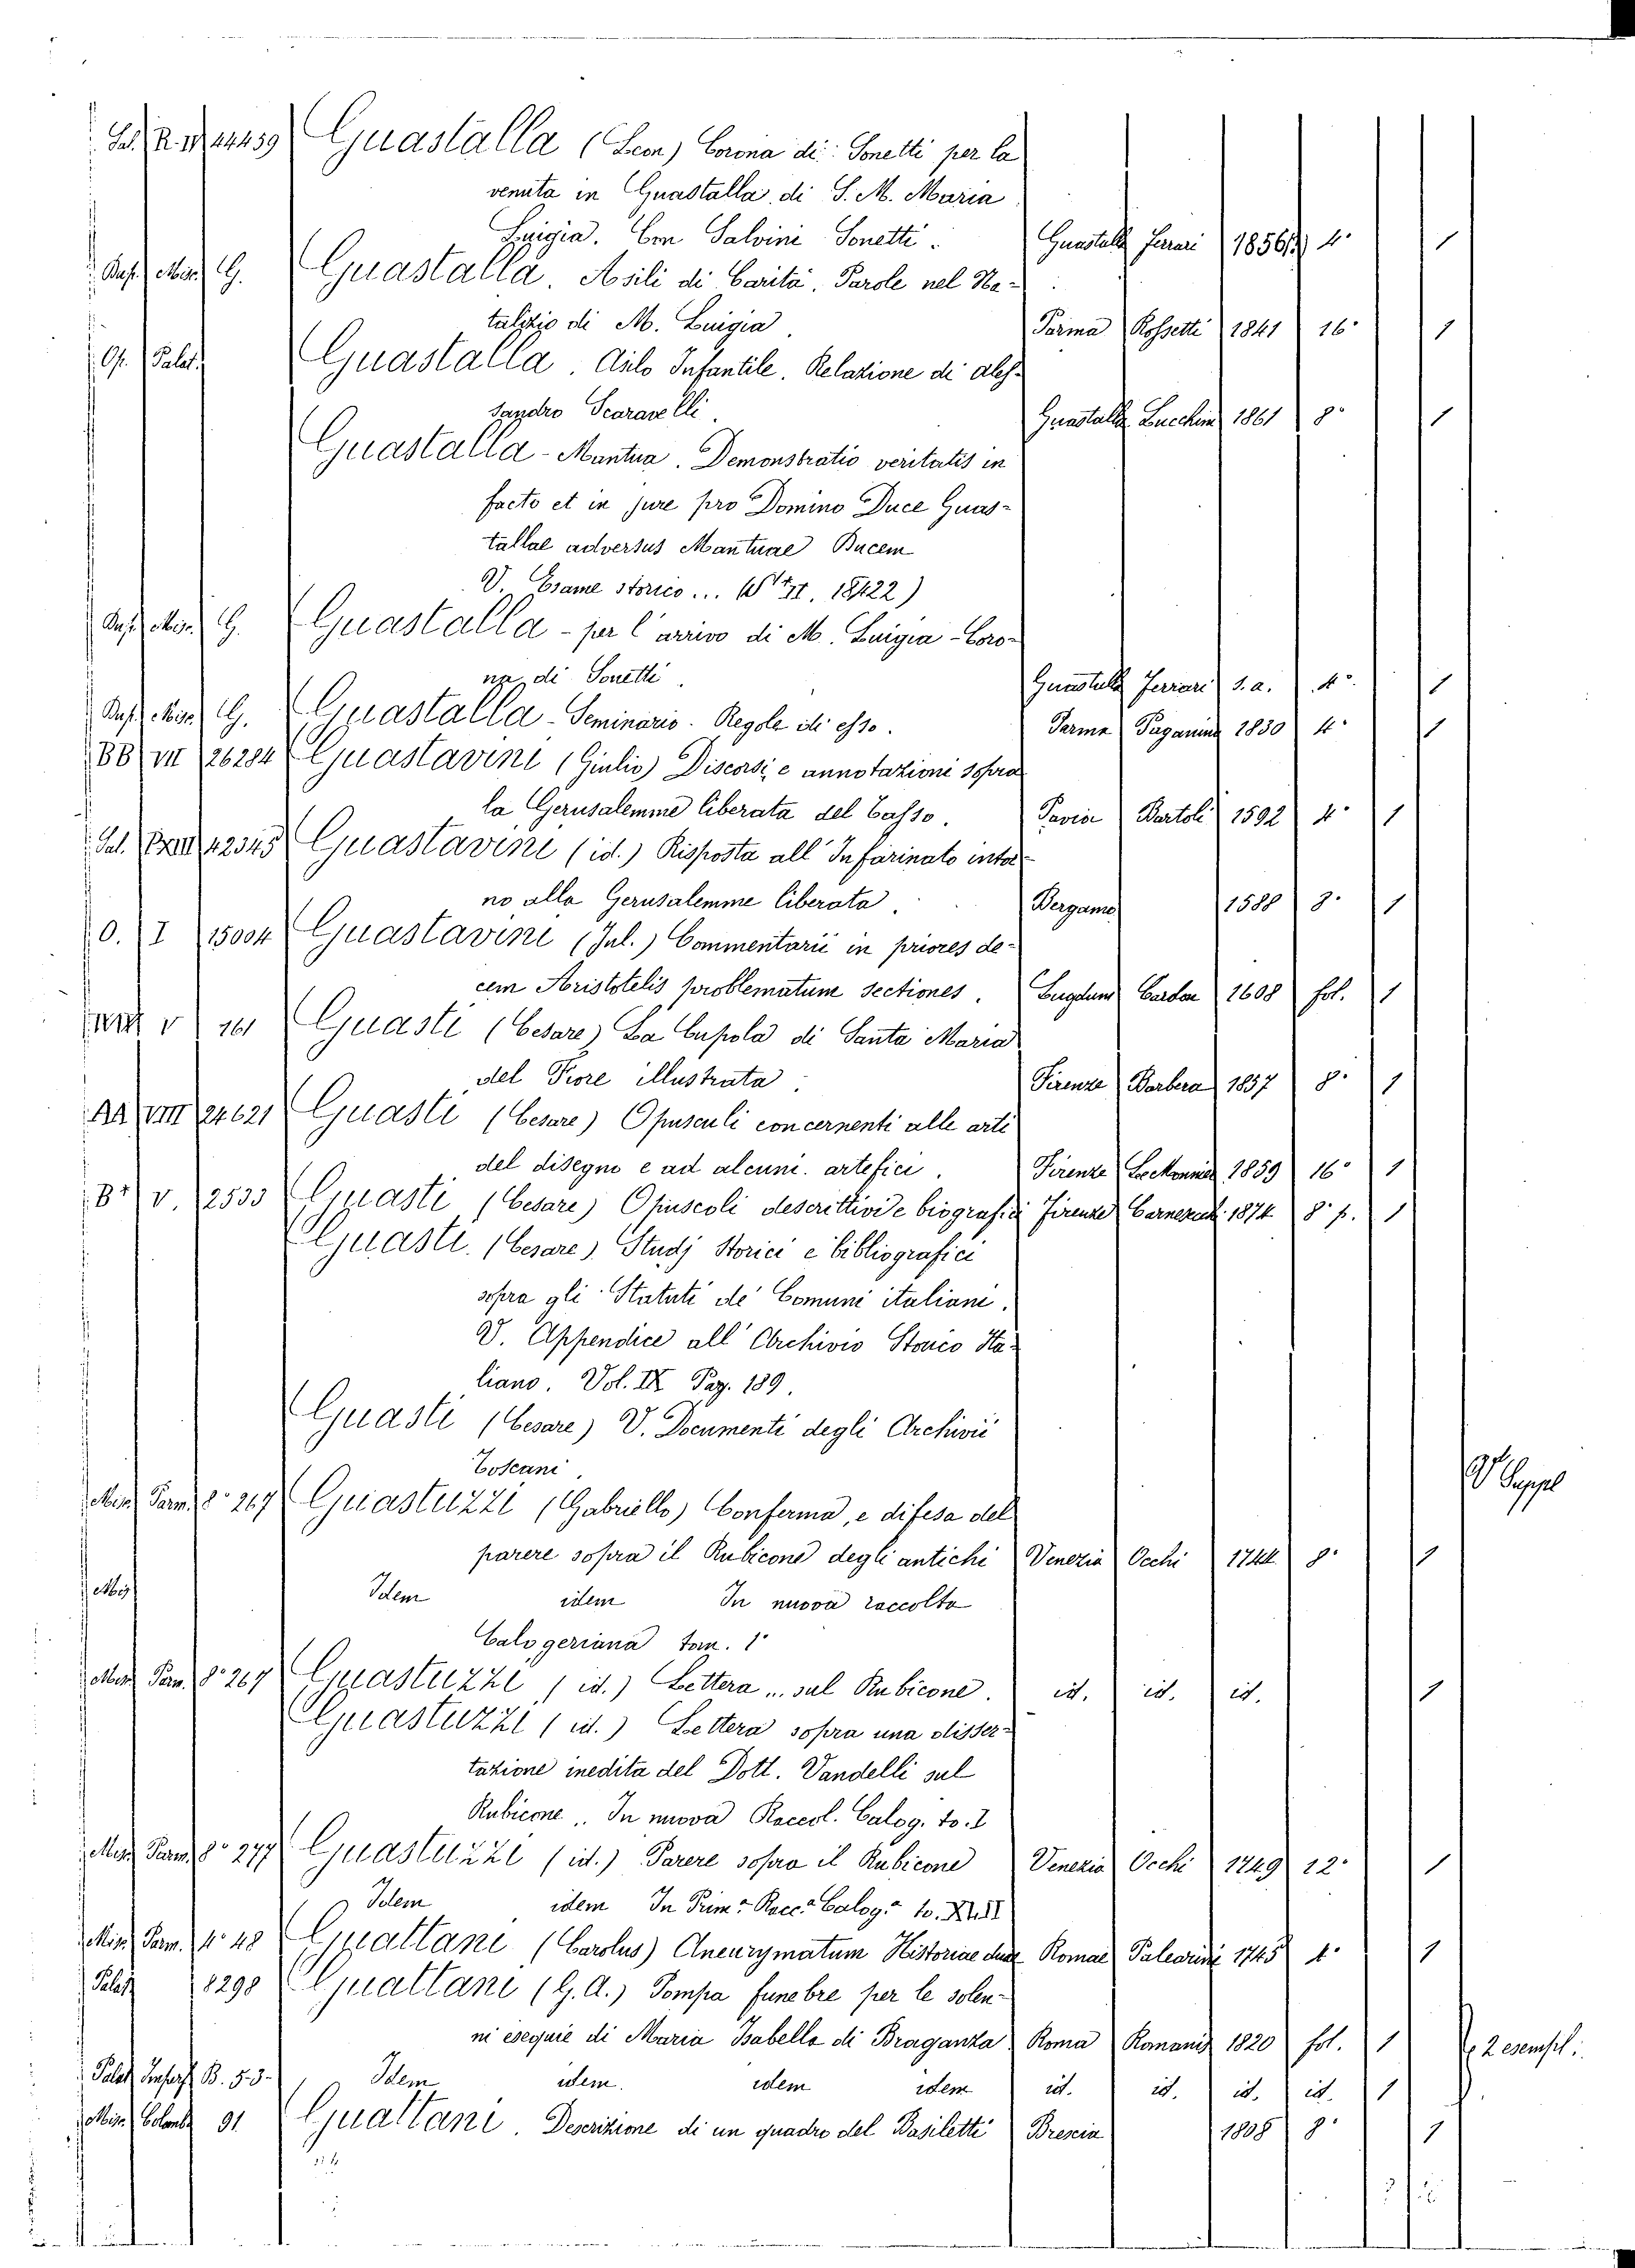 Guastalla (Leon) Corona di Sonetti per la
venuta in Guastalla di S. M. Maria
Luigia. Con Salvini Sonetti. Guastalla Ferrari 4° 1
Misc. G. Guastalla. Asili di Carità. Parole nel Na-
talizio di M. Luigia Parma Rossetti 1841 16° 1
Palat. Guastalla. Asilo Infantile. Relazione di Ales-
sandro Scaravelli. Guastalla Lucchini 1861 8° 1
Guastalla - Mantua. Demonstratio veritatis in
facto et in jure pro Domino Duce Guas-
tallae adversus Mantuae Ducem
V. Esame storico... 18422)
Misc. G. Guastalla - per l'arrivo di M. Luigia - Coro-
na di Sonetti. Guastalla Ferrari s. a. 4° 1
Misc. G. Guastalla - Seminario. Regole di esso. Parma Paganini 1830 4° 1
BB VII 26284 Guastavini (Giulio) Discorsi e annotazioni sopra
la Gerusalemme liberata del Tasso. Pavia Bartoli 1592 4° 1
42345 Guastavini (id.) Risposta all' Infarinato intor-
no alla Gerusalemme liberata. Bergamo 1588 8° 1
O. I 15004 Guastavini (Jul.) Commentarii in priores de-
cem Aristotelis problematum sectiones. Lugduni Cardon 1608 fol. 1
V 161 Guasti (Cesare) La Cupola di Santa Maria
del Fiore illustrata. Firenze Barbera 1857 8° 1
AA VIII 24621 Guasti (Cesare) Opusculi concernenti alle arti
del disegno e ad alcuni artefici. Firenze Lemonnier 1859 16° 1
V. 2533 Guasti (Cesare) Opuscoli descrittivi e biografici Firenze Carnesecchi 1874 8° p. 1
Guasti. (Cesare) Studj Storici e bibliografici
sopra gli Statuti de' Comuni italiani.
V. Appendice all' Archivio Storico Ita-
liano. Vol. IX Pag. 189.
Guasti (Cesare) V. Documenti degli Archivii
Toscani. V. Suppl
Misc. Parm. 8° 267 Guastuzzi (Gabriello) Conferma, e difesa del
parere sopra il Rubicone degli antichi Venezia Occhi 1744 8° 1
Misc. Idem idem In nuova raccolta
Calogeriana tom. 1°
Misc. Parm. 8° 267 Guastuzzi (id.) Lettera .. sul Rubicone. id. id. id. 1
Guastuzzi (id.) Lettera sopra una disser-
tazione inedita del Dott. Vandelli sul
Rubicone .. In nuova Raccol. Calog. to. I
Misc. Parm. 8° 277 Guastuzzi (id.) Parere sopra il Rubicone Venezia Occhi 1749 12° 1
Idem idem In Prima Racca Caloga to. XLII
Misc. Parm. 4° 48 Guattani (Carolus) Aneurymatum Historiae duae Romae Palearini 1745 4° 1
Palat. 8298 Guattani (G. A.) Pompa funebre per le solen-
ni esequie di Maria Isabella di Braganza Roma Romanis 1820 fol. 1 2 esempl.
Palat. B. 53 Idem idem. idem idem id. id. id. id. 1
Misc. Colomb. 91 Guattani. Descrizione di un quadro del Basiletti Brescia 1808 8° 1